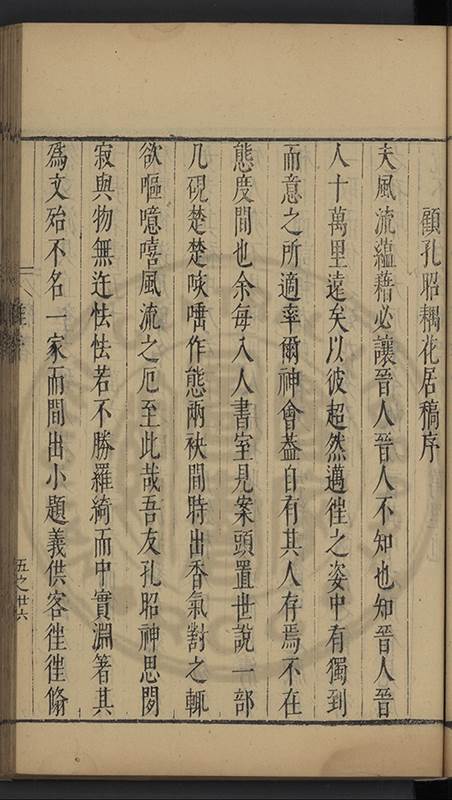 顧孔昭耦花居稿序
夫風流蘊藉必讓晉人晉人不知也知晉人晉
人十萬里遠矣以彼超然邁徃之姿中有獨到
而意之所適率爾神會葢自有其人存焉不在
態度間也余每入人書室見案頭置世說一部
几硯楚楚咳唾作態兩袂間時出香氣對之輒
欲嘔噫嘻風流之厄至此哉吾友孔昭神思閴
寂與物無迕怯怯若不勝羅綺而中實淵箸其
爲文殆不名一家而間出小題義供客徃徃翛
五之廿六